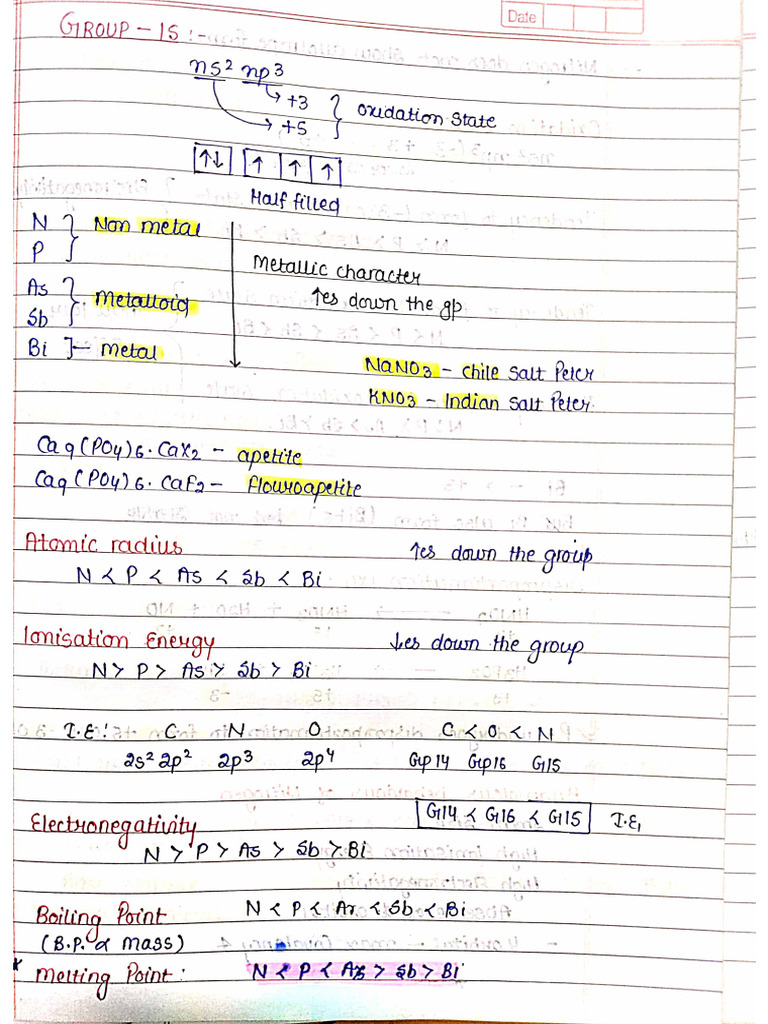 Date
GROUP - 15 :-
ns² np³
→ +3
→ +5
} Oxidation State
↑↓ ↑ ↑ ↑
Half filled
N
P
} Non metal
Metallic character
↑es down the gp
As
Sb
} Metalloid
Bi ]— metal
NaNO3 - chile Salt Peter
KNO3 - Indian Salt Peter
Ca9(PO4)6.CaX2 - apetite
Ca9(PO4)6.CaF2 - flouroapetite
Atomic radius ↑es down the group
N < P < As < Sb < Bi
Ionisation Energy ↓es down the group
N > P > As > Sb > Bi
I.E: C N O C < O < N
2s² 2p² 2p³ 2p⁴ Grp 14 Grp16 G15
G14 < G16 < G15 I.E₁
Electronegativity
N > P > As > Sb > Bi
Boiling Point N < P < Ar < Sb < Bi
(B.P. ∝ mass)
* Melting Point: N < P < As > Sb > Bi